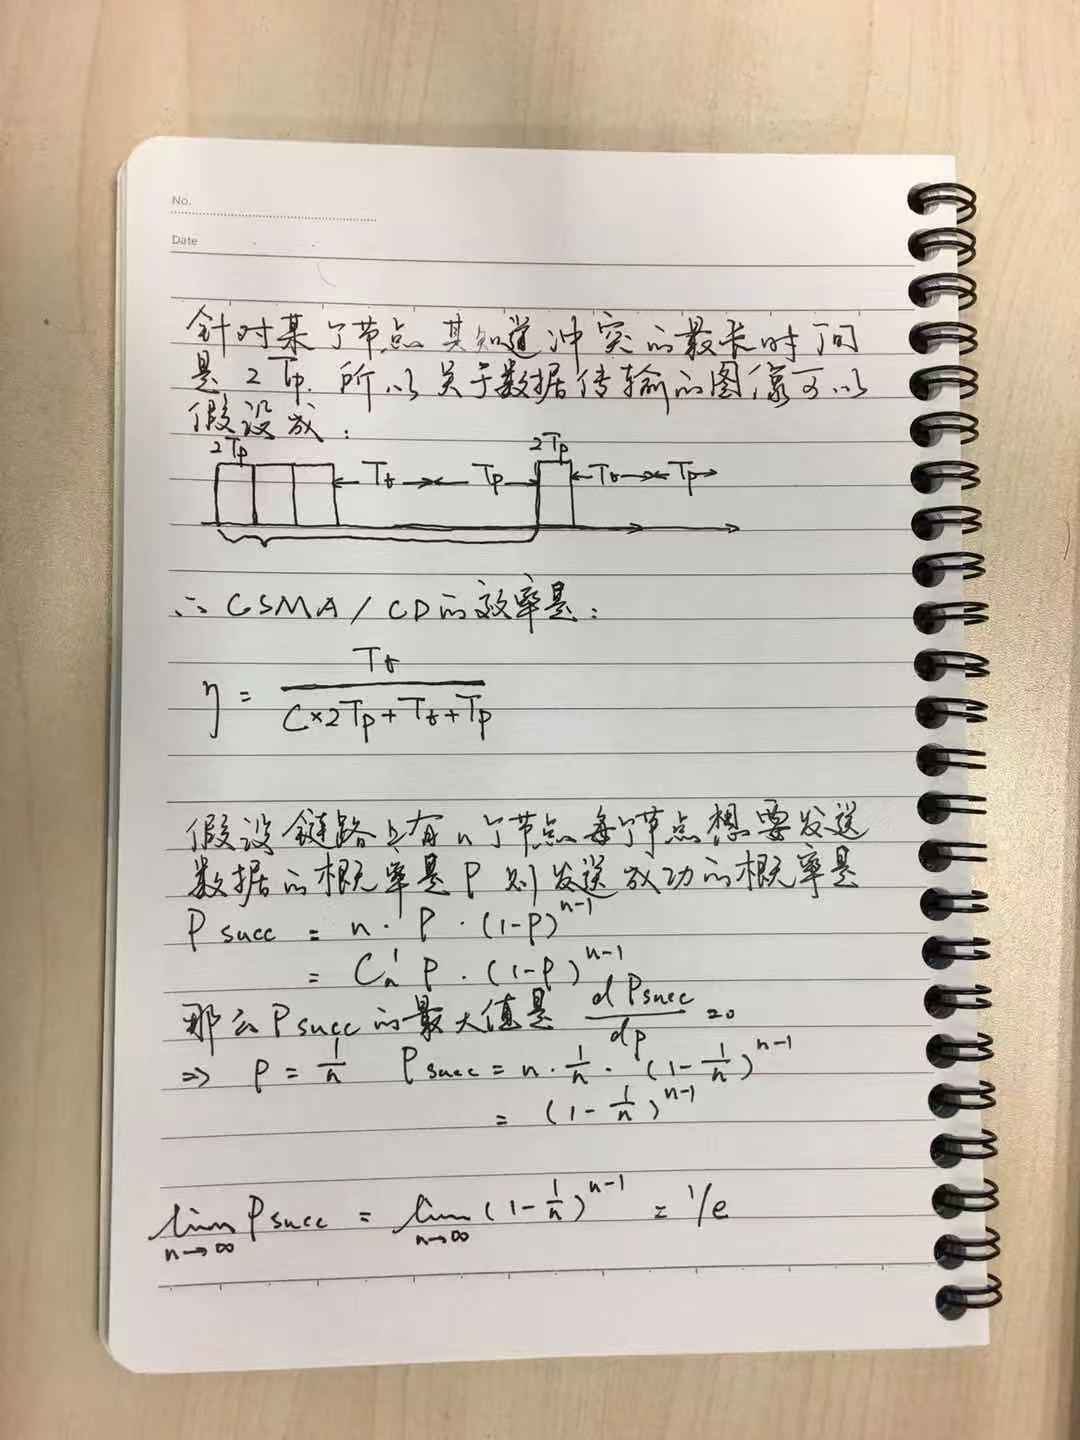 No.
Date
针对某个节点 其知道冲突的最长时间
是 2Tp. 所以关于数据传输的图像可以
假设成：
2Tp Tt Tp 2Tp Tt Tp
∴ CSMA/CD的效率是：
η = Tt / (C×2Tp+Tt+Tp)
假设链路上有n个节点 每个节点想要发送
数据的概率是P 则发送成功的概率是
P succ = n · P · (1-P)^(n-1)
= C_n^1 P · (1-P)^(n-1)
那么Psucc的最大值是 dPsucc/dp =0
⇒ P = 1/n Psucc = n · 1/n · (1 - 1/n)^(n-1)
= (1 - 1/n)^(n-1)
lim n→∞ Psucc = lim n→∞ (1 - 1/n)^(n-1) = 1/e